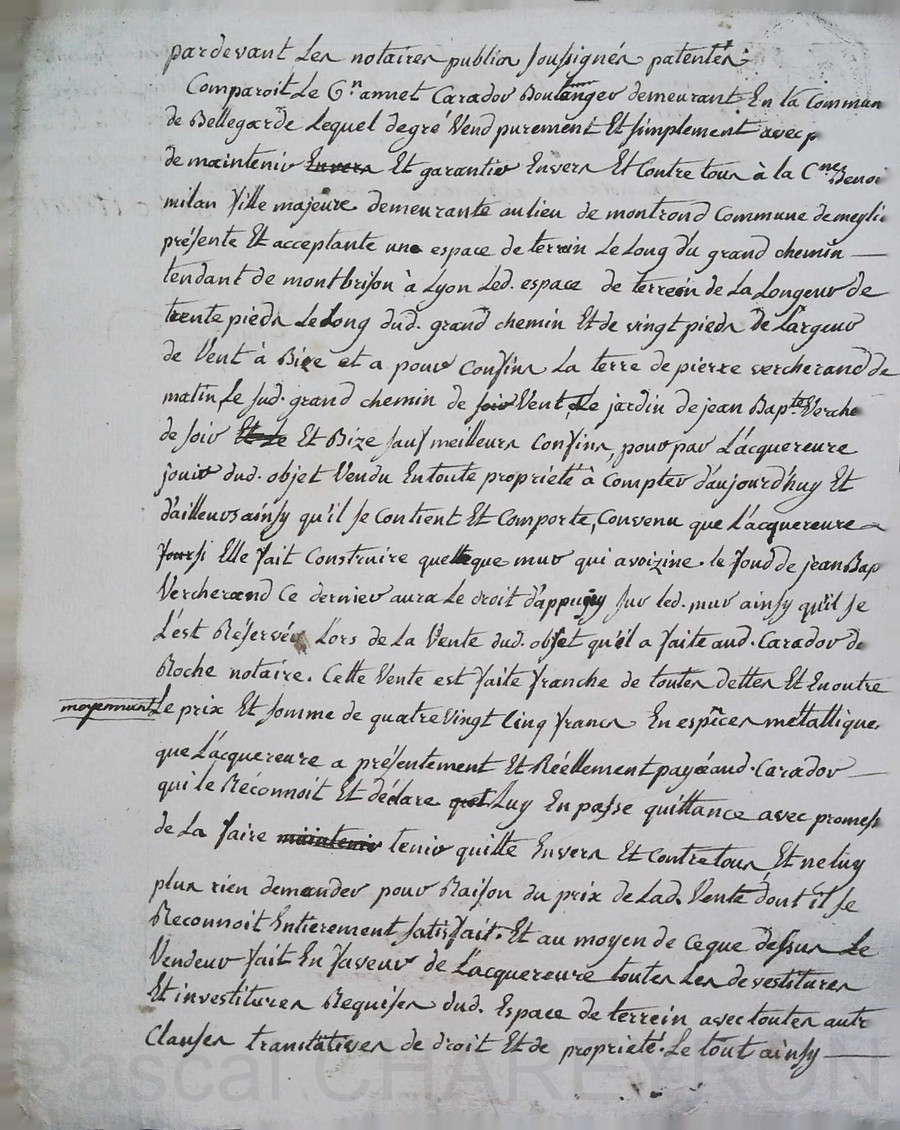 pardevant Les notaires publics soussignés patentés
Comparoit Le C.n annet Caradou Boulanger demeurant En la Commun
de Bellegarde Lequel de gré Vend purement Et simplement avec p
de maintenir Envers Et garantir Envers Et Contre tous à la C.nne Benoi
milan fille majeure demeurante au lieu de montrond Commune de meyli
présente Et acceptante une espace de terrein Le Long du grand chemin
tendant de montbrison à Lyon Led. espace de terrein de La Longeur de
trente pieds Le Long dud. grand chemin Et de vingt pieds de Largeur
de Vent à Bize et a pour Confins La terre de pierre vercherand de
matin, Le sud. grand chemin de soir Vent Le jardin de jean Bap.te Verche
de soir Et Le Et Bize sauf meilleurs Confins, pour par L'acquereure
jouir dud. objet Vendu En toute propriété à Compter d'aujourd'huy Et
d'ailleurs ainsy qu'il se Contient Et Comporte, Convenu que L'acquereure
si Elle fait Construire quelque mur qui avoizine le fond de jean Bap
Vercherand Ce dernier aura Le droit d'appuyy sur led. mur ainsy qu'il se
L'est Réservée L'ors de La Vente dud. objet qu'il a faite aud. Caradou de
Roche notaire. Cette Vente est faite franche de toutes dettes Et En outre
moyennant Le prix Et somme de quatre Vingt Cinq francs En espèces mettallique
que L'acquereure a présentement Et Réellement payé aud. Caradou
qui le Réconnoit Et déclare Luy En passe quittance avec promess
de La faire maintenir tenir quitte Envers Et Contre tous Et ne luy
plus rien demander pour Raison du prix de Lad. Vente dont il se
Reconnoit Entierement satisfait. Et au moyen de Ce que dessus Le
Vendeur fait En faveur de L'acquereure toutes Les devestitures
Et investitures Requises dud. Espace de terrein avec toutes autr
Clauses translatives de droit Et de propriété. Le tout ainsy
Pascal CHAREYRON